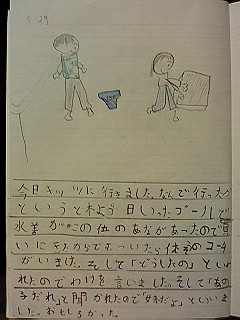 今日キッツに行きました。なんで行ったか
というと木よう日いったプールで
水着がこの位のあながあったので買
いにきたからです。ついたら体そうのコーチ
がいました。そして「どうしたの」といわ
れたのでわけを言いました。そして「あの
子だれ」と聞かれたので「妹だよ」といいま
した。おもしろかった。